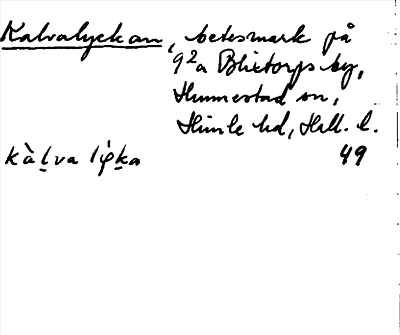 Kalvalyckan, betesmark på
9²a Blixtorps by,
Hunnestad sn,
Himle hd, Hall. l.
kàḻva lỵ̀ḵa 49